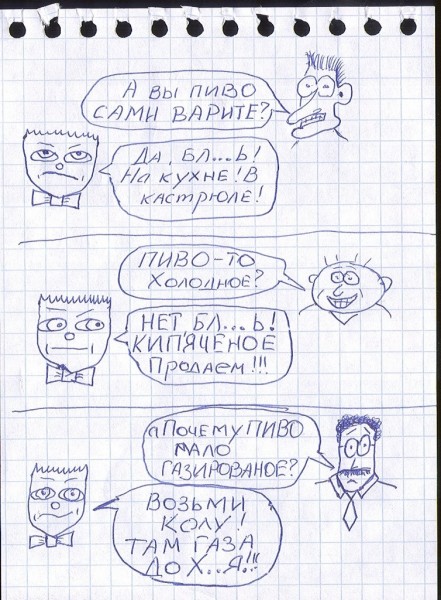 А ВЫ ПИВО
САМИ ВАРИТЕ?
ДА, БЛ...Ь!
НА КУХНЕ! В
КАСТРЮЛЕ!
ПИВО-ТО
ХОЛОДНОЕ?
НЕТ, БЛ...Ь!
КИПЯЧЕНОЕ
ПРОДАЕМ!!!
ПОЧЕМУ ПИВО
МАЛО
ГАЗИРОВАНОЕ?
ВОЗЬМИ
КОЛУ!
ТАМ ГАЗА
ДО Х..Я!!!